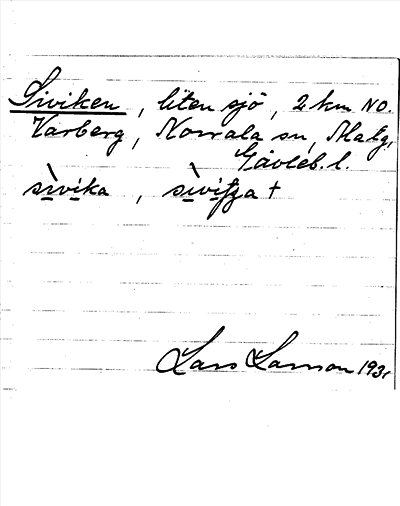 Siviken, liten sjö, 2 km NO.
Varberg, Norrala sn,
Gävleb. l.
sìvika, sìvitja +
Lars Larsson 193